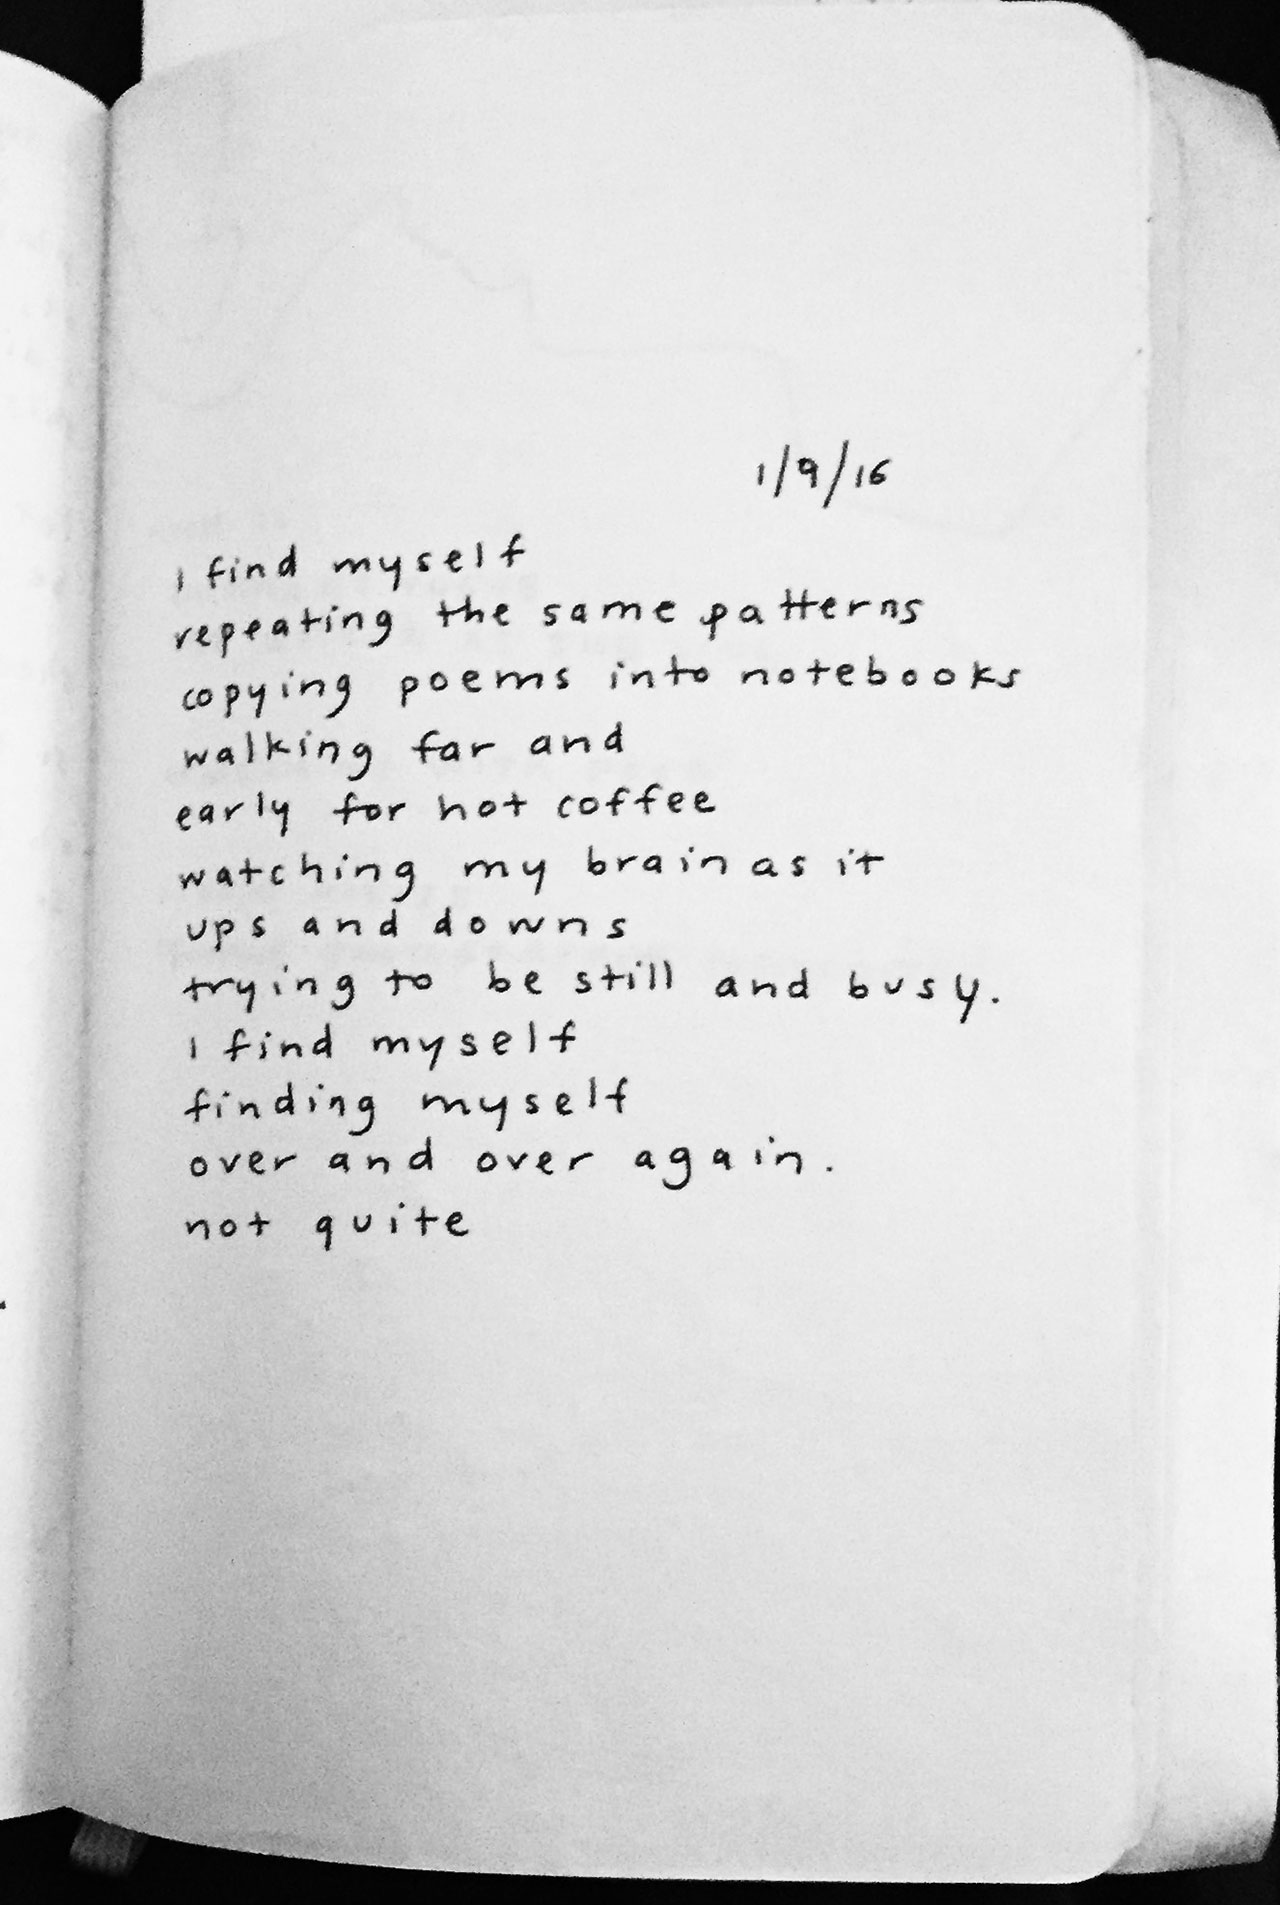 1/9/16
I find myself
repeating the same patterns
copying poems into notebooks
walking far and
early for hot coffee
watching my brain as it
ups and downs
trying to be still and busy.
I find myself
finding myself
over and over again.
not quite